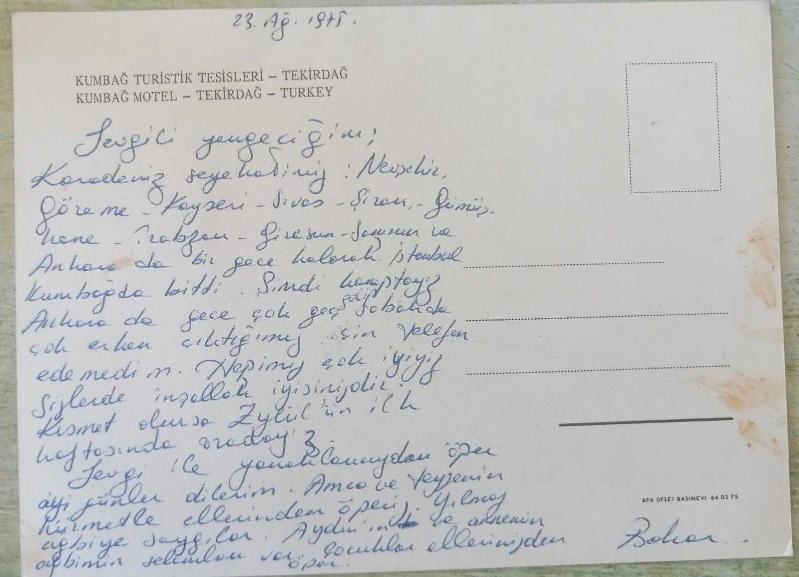 23. Ağ. 1975.
KUMBAĞ TURİSTİK TESİSLERİ – TEKİRDAĞ
KUMBAĞ MOTEL – TEKİRDAĞ – TURKEY
Sevgili yengeciğim;
Karadeniz seyehatimiz : Nevşehir,
Göreme - Kayseri - Sivas - Şiran, - Gümüş,
hane - Trabzon - Giresun - Samsun ve
Ankara da bir gece kalarak İstanbul
Kumbağda bitti. Şimdi kamptayız
Ankara da gece çok geç gelip sabahda
çok erken çıktığımız için telefon
edemedim. Hepimiz çok iyiyiz
Sizlerde inşallah iyisinizdir.
Kısmet olursa Eylül'ün ilk
haftasında oradayız
Sevgi ile yanaklarınızdan öper
iyi günler dilerim. Amca ve teyzenin
hürmetle ellerinden öperiz. Yılmaz
ağbiye saygılar. Aydın'ın ve annemin
ağbimin selamları var. Çocuklar ellerinizden
öper.
APA OFSET BASIMEVİ 64 03 75